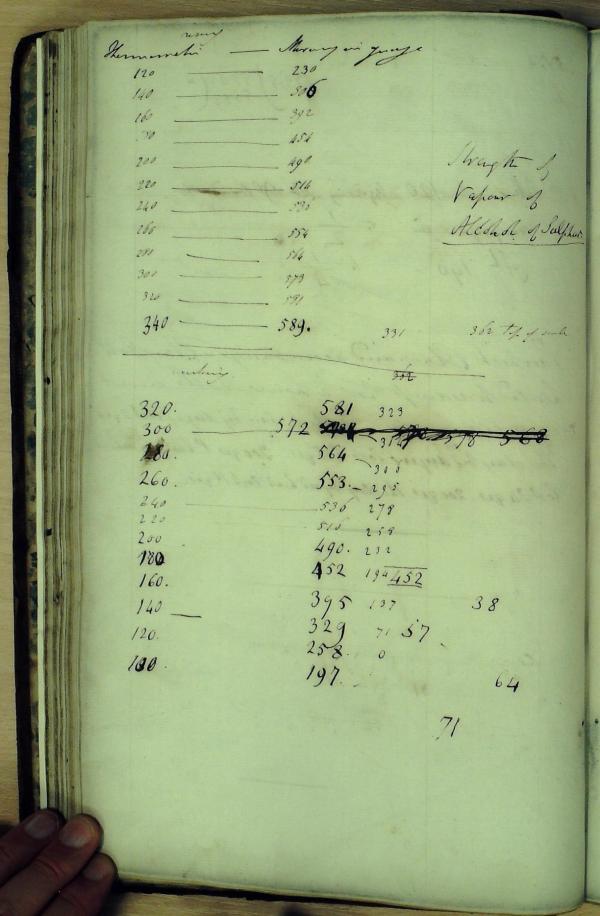 rising
Thermometer — Mercury in gauge
120 230
140 306
160 392
180 454
200 490
220 514
240 536
260 554
280 564
300 573
320 581
340 589. 331 362 top of scale
Strength of
Vapour of
Alcohol of Sulphur
362
320. 581 323
300 572 578 568
314
280. 564
300
260. 553. 295
240 536 278
220 516 258
200 490. 232
180 452 194 452
160. 395 137 38
140 — 329 71 57
120. 258. 0
100. 197. 64
71